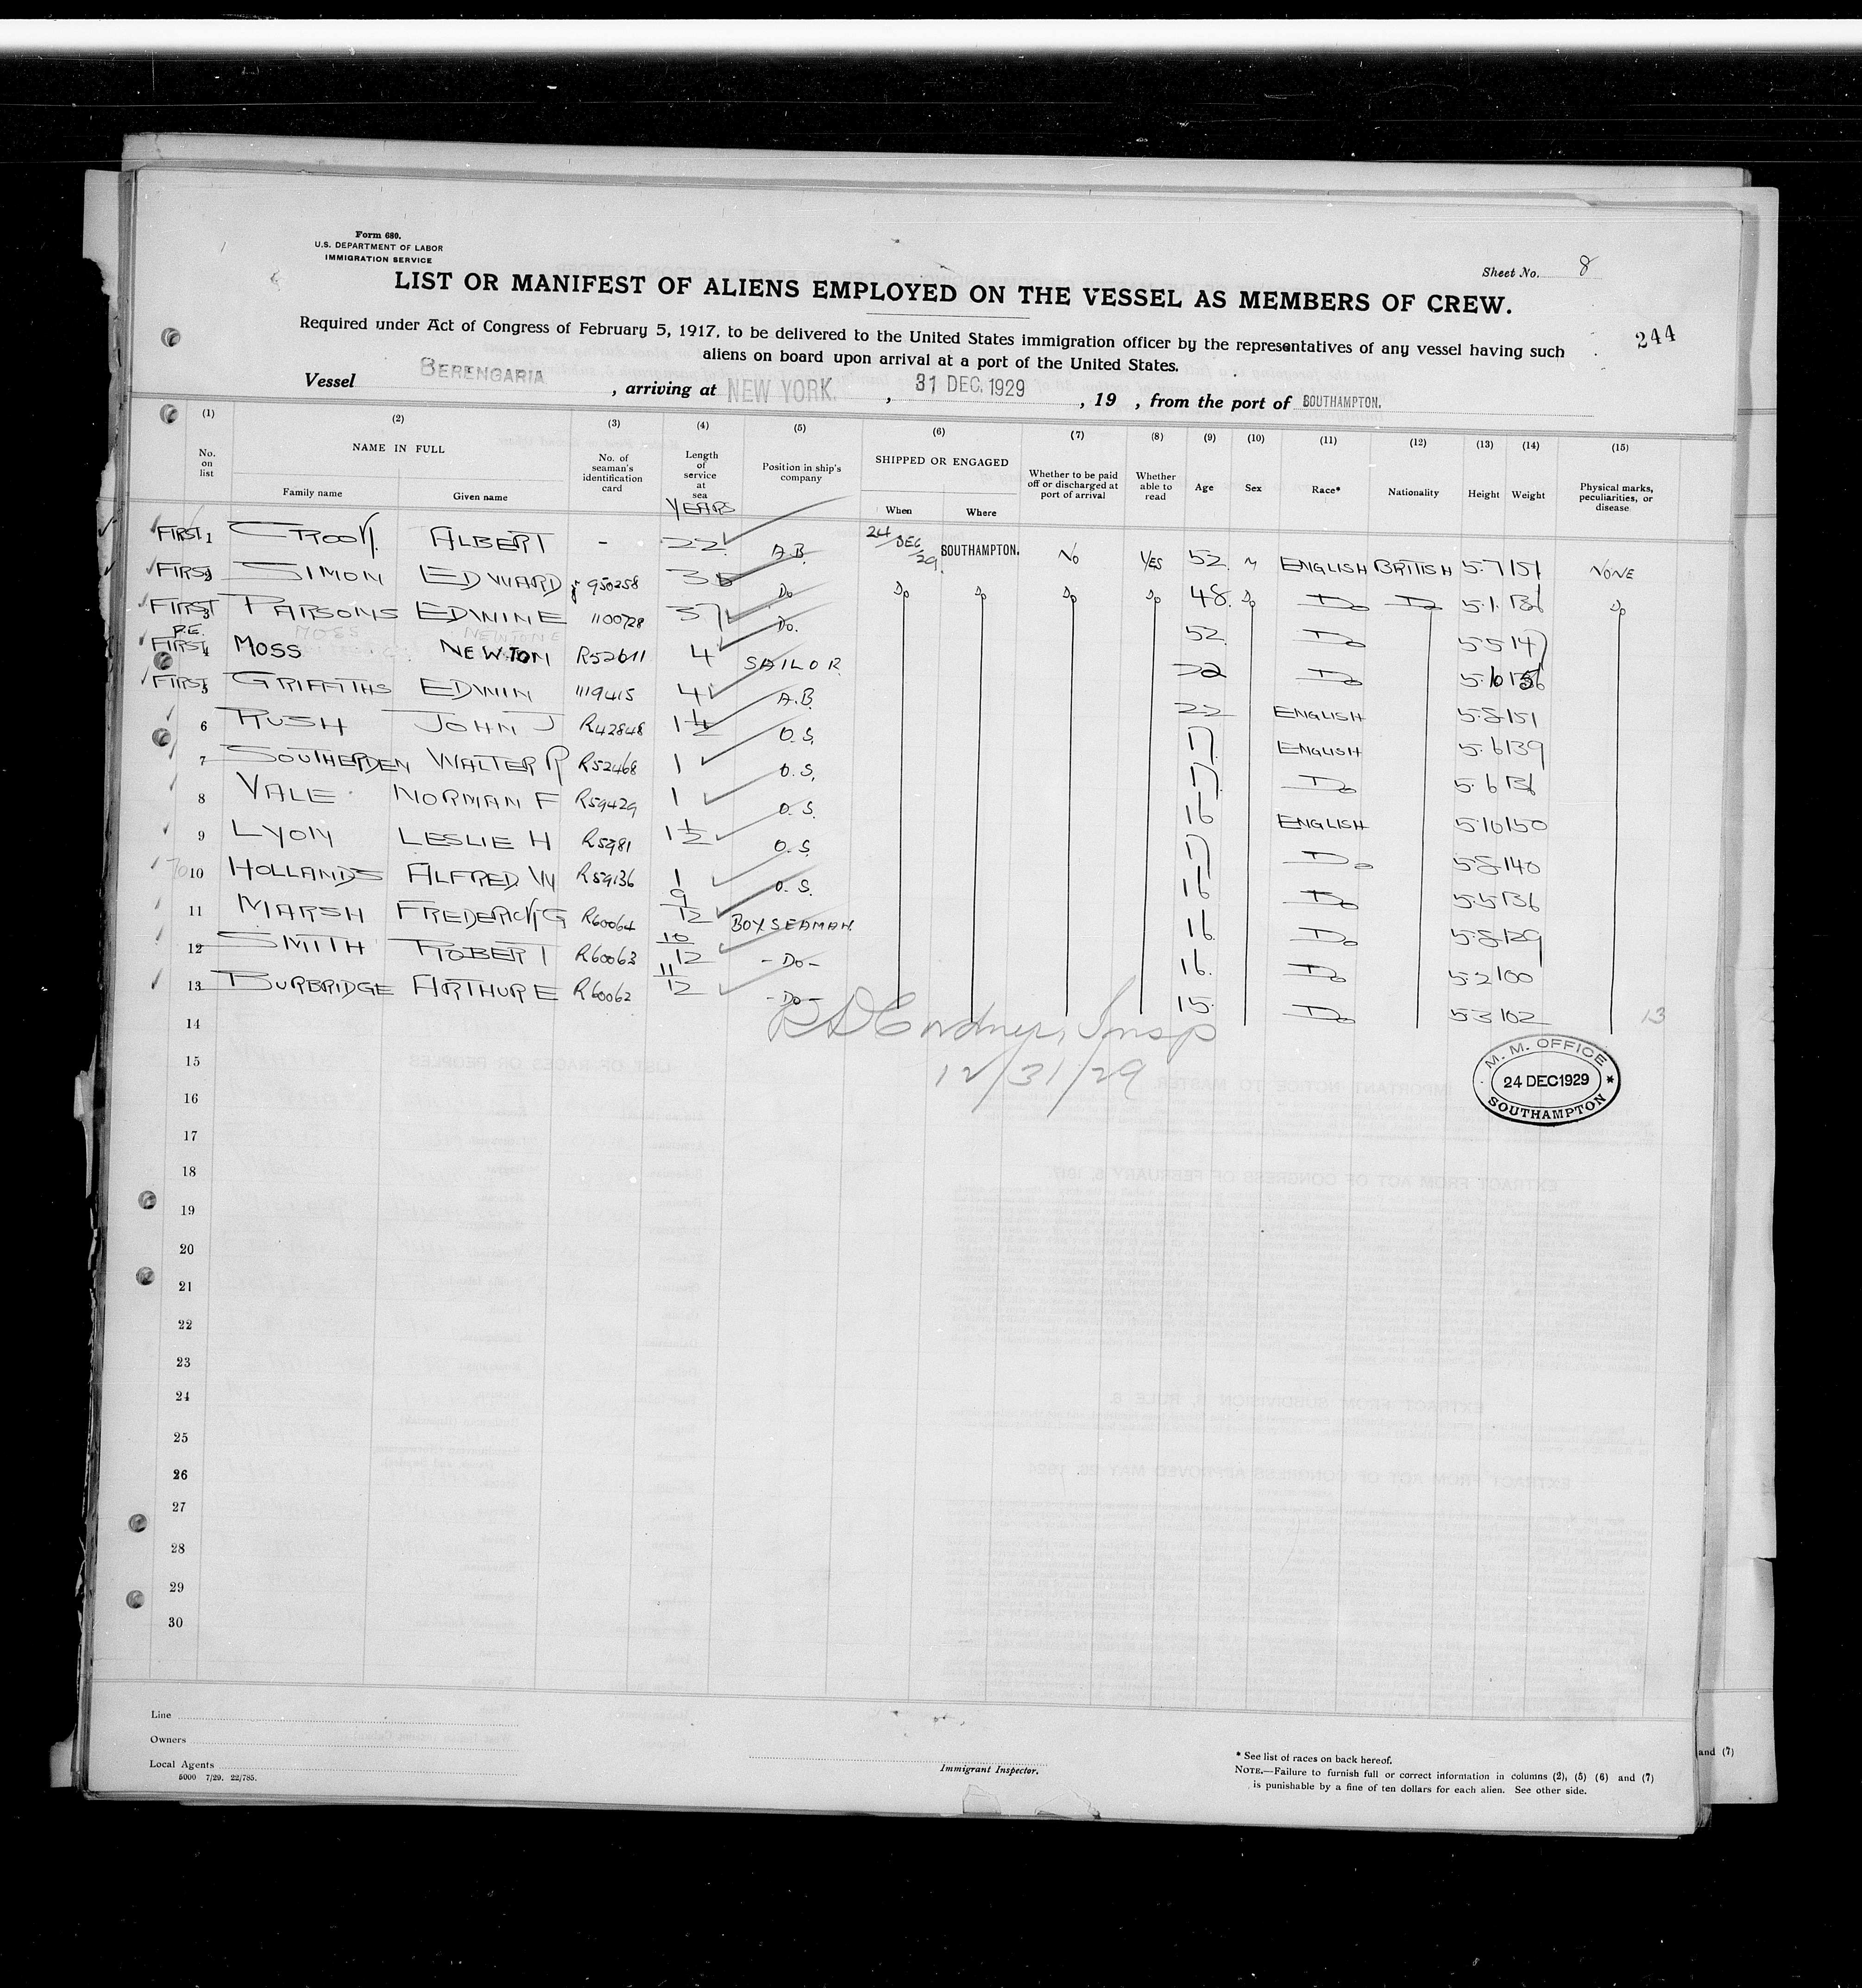 Form 680.
U.S. DEPARTMENT OF LABOR
IMMIGRATION SERVICE
Sheet No. 8
LIST OR MANIFEST OF ALIENS EMPLOYED ON THE VESSEL AS MEMBERS OF CREW.
244
Required under Act of Congress of February 5, 1917, to be delivered to the United States immigration officer by the representatives of any vessel having such
aliens on board upon arrival at a port of the United States.
Vessel BERENGARIA, arriving at NEW YORK., 31 DEC. 1929, 19 , from the port of SOUTHAMPTON.
(1) (2) (3) (4) (5) (6) (7) (8) (9) (10) (11) (12) (13) (14) (15)
No. on list NAME IN FULL Family name Given name No. of seaman's identification card Length of service at sea YEARS Position in ship's company SHIPPED OR ENGAGED When Where Whether to be paid off or discharged at port of arrival Whether able to read Age Sex Race* Nationality Height Weight Physical marks, peculiarities, or disease
FIRST 1 CROOK. ALBERT - 22 A.B. 24/DEC/29 SOUTHAMPTON. NO YES 52 M ENGLISH BRITISH 5.7 151 NONE
FIRST 2 SIMON EDWARD J 950258 Do Do Do Do Do 48. Do Do Do 5.1. 136 Do
FIRST 3 PARSONS EDWIN E 1100728 37 Do. 52. Do 5.5 147
P.E.
FIRST 4 MOSS NEWTON R52611 4 SAILOR 22 Do
FIRST 5 GRIFFITHS EDWIN 1119415 4 A.B. 22 ENGLISH 5.8 151
6 RUSH JOHN J R42848 1 1/2 O.S. 17. ENGLISH 5.6 139
7 SOUTHERDEN WALTER R R52468 1 O.S. 17. Do 5.6 136
8 VALE NORMAN F R59429 1 O.S. 16 ENGLISH 5.10 150
9 LYON LESLIE H R5981 1 1/2 O.S. 17 Do 5.8 140
10 HOLLANDS ALFRED W R59136 1 O.S. 16 Do 5.5 136
11 MARSH FREDERICK G R60064 9/12 BOY SEAMAN 16. Do 5.8 139
12 SMITH ROBERT R60063 10/12 - Do - 16. Do 5.2 100
13 BURBRIDGE ARTHUR E R60062 11/12 - Do - 15. Do 5.3 102
13
14
Insp
12/31/29
M. M. OFFICE
24 DEC 1929
SOUTHAMPTON
15
16
17
18
19
20
21
22
23
24
25
26
27
28
29
30
Line
Owners
Local Agents
5000 7/29. 22/785.
Immigrant Inspector.
* See list of races on back hereof.
NOTE.—Failure to furnish full or correct information in columns (2), (5) (6) and (7)
is punishable by a fine of ten dollars for each alien. See other side.
and (7)